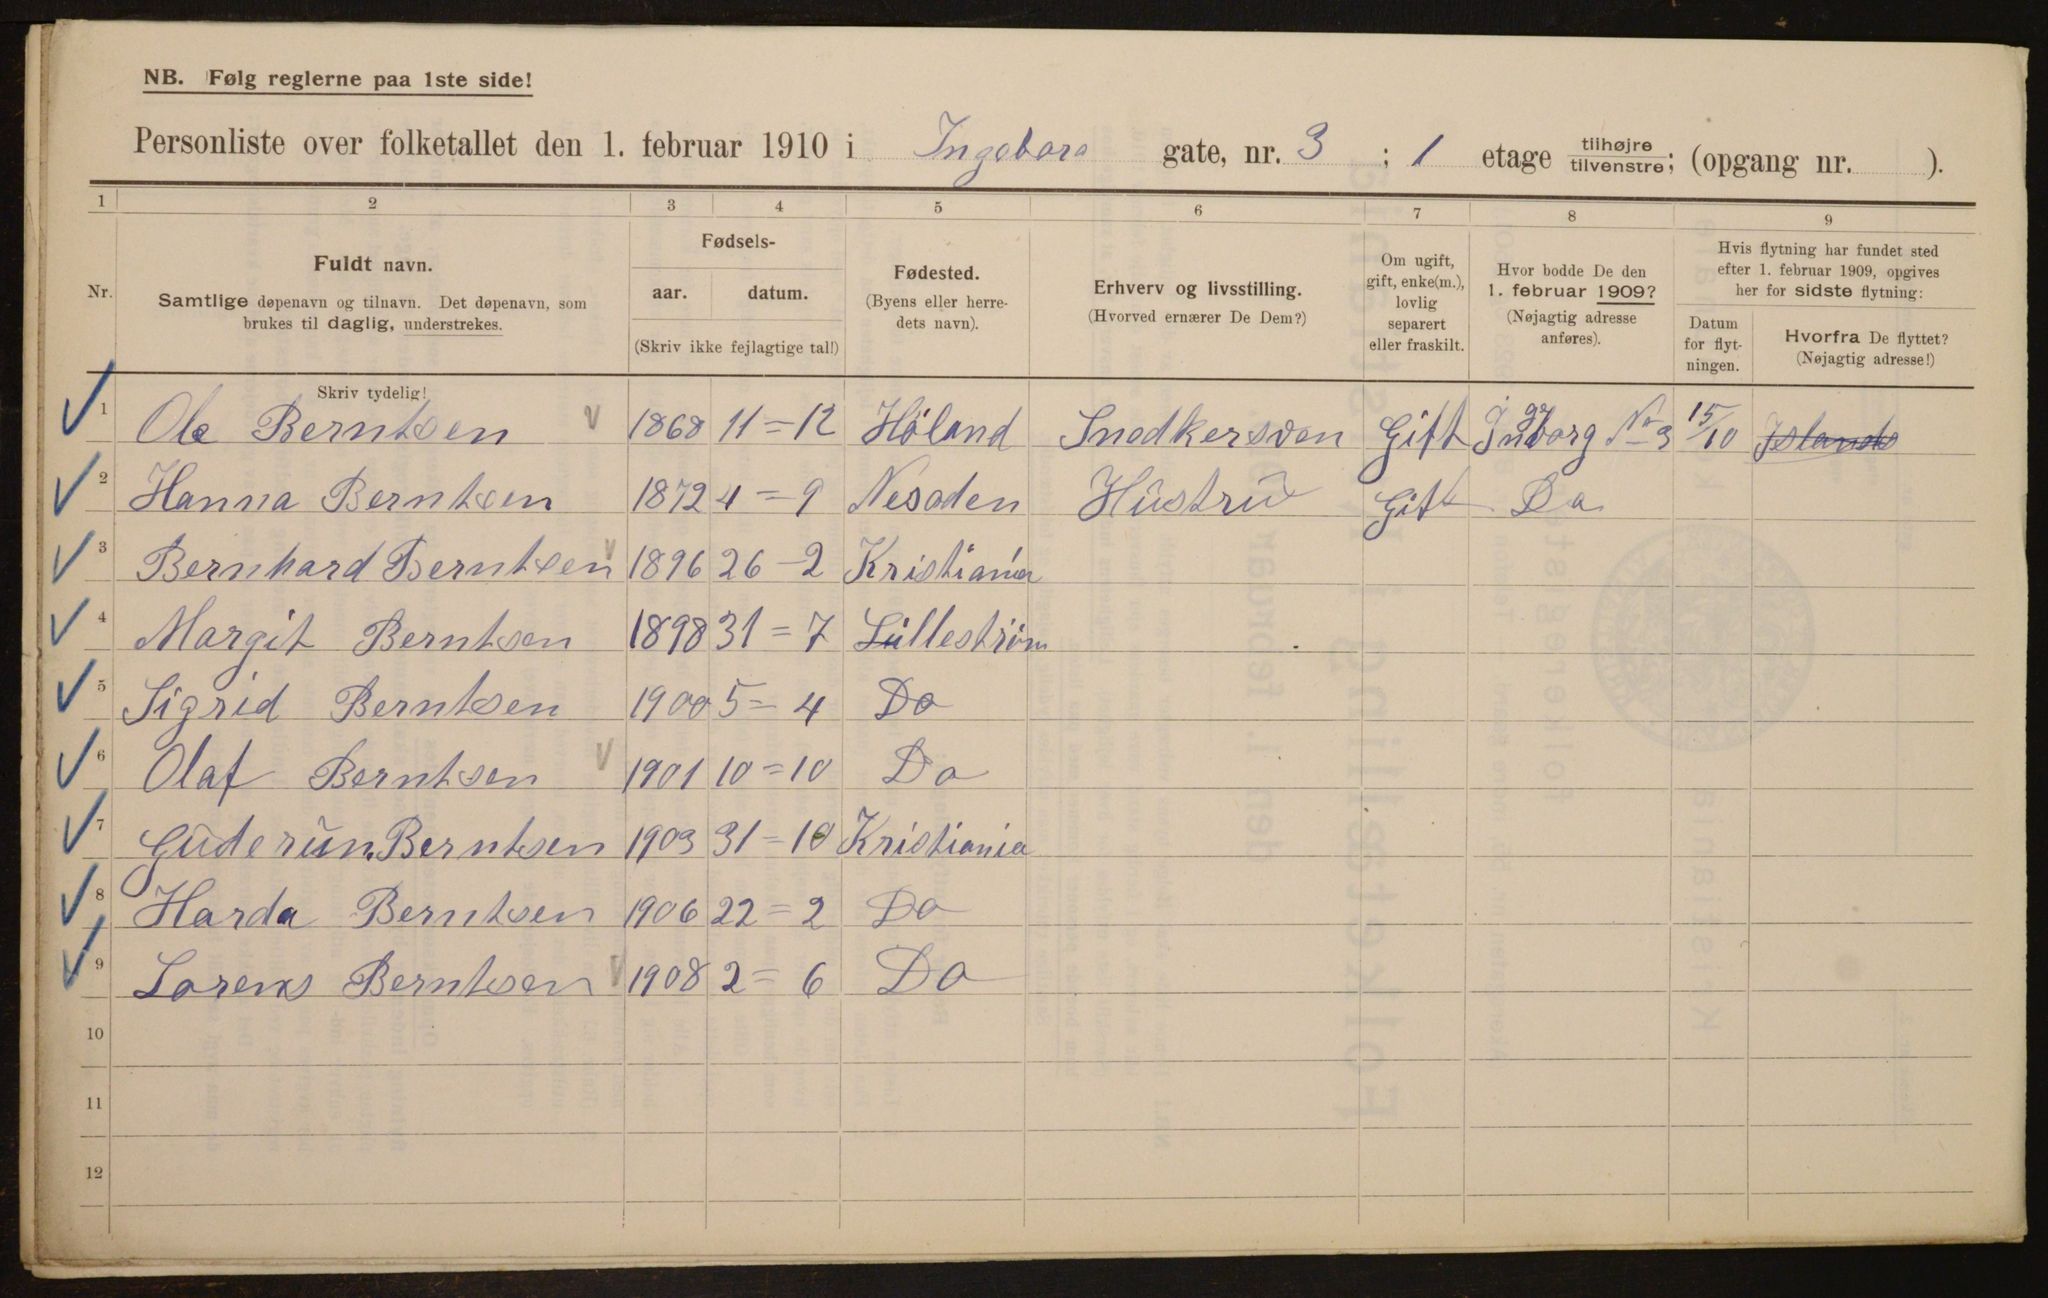 NB. Følg reglerne paa 1ste side!
Personliste over folketallet den 1. februar 1910 i Ingeborg gate, nr. 3 ; 1 etage tilhøjre tilvenstre; (opgang nr. ).
1 2 3 4 5 6 7 8 9
Nr.
Fuldt navn.
Samtlige døpenavn og tilnavn. Det døpenavn, som
brukes til daglig, understrekes.
Skriv tydelig!
Fødsels-
aar. datum.
(Skriv ikke fejlagtige tal!)
Fødested.
(Byens eller herre-
dets navn).
Erhverv og livsstilling.
(Hvorved ernærer De Dem?)
Om ugift,
gift, enke(m.),
lovlig
separert
eller fraskilt.
Hvor bodde De den
1. februar 1909?
(Nøjagtig adresse
anføres).
Hvis flytning har fundet sted
efter 1. februar 1909, opgives
her for sidste flytning:
Datum
for flyt-
ningen.
Hvorfra De flyttet?
(Nøjagtig adresse!)
1 Ole Berntsen 1868 11=12 Höland Snedkersven Gift No 3 15/10
2 Hanna Berntsen 1872 4=9 Nesoden Hustru Gift Do
3 Bernhard Berntsen 1896 26-2 Kristiania
4 Margit Berntsen 1898 31=7 Lillestrøm
5 Sigrid Berntsen 1900 5=4 Do
6 Olaf Berntsen 1901 10=10 Do
7 Guderun Berntsen 1903 31=10 Kristiania
8 Harda Berntsen 1906 22=2 Do
9 Lorens Berntsen 1908 2=6 Do
10
11
12